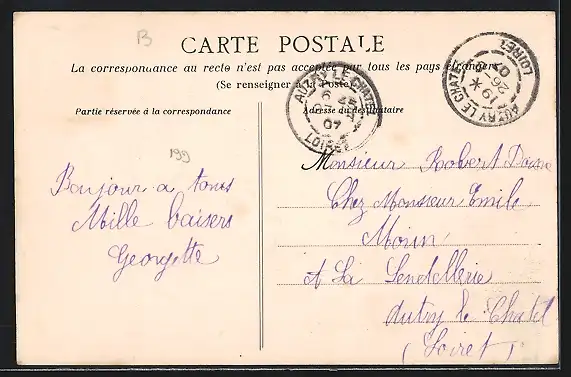 B
CARTE POSTALE
La correspondance au recto n'est pas acceptée par tous les pays étrangers
(Se renseigner à la Poste)
Partie réservée à la correspondance
Adresse du destinataire
AUTRY LE CHATEL
07
LOIRET
AUTRY LE CHATEL
26
07
LOIRET
199
Bonjour a tous
Mille baisers
Georgette
Monsieur Robert
Chez Monsieur Emile
Morin
A La
Autry le Chatel
(Loiret)